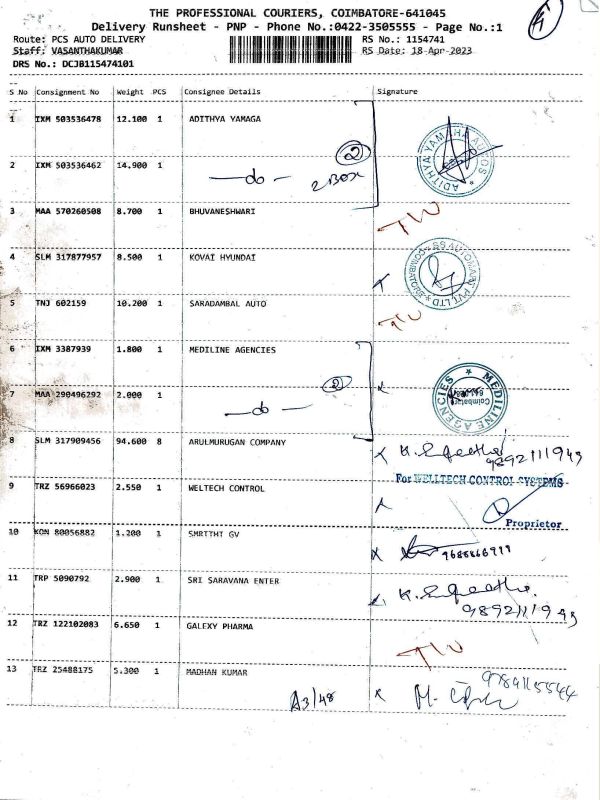 THE PROFESSIONAL COURIERS, COIMBATORE-641045
Delivery Runsheet - PNP - Phone No.:0422-3505555 - Page No.:1
Route: PCS AUTO DELIVERY RS No.: 1154741
Staff: VASANTHAKUMAR RS Date: 18-Apr-2023
DRS No.: DCJB115474101
S No Consignment No Weight PCS Consignee Details Signature
1 IXM 503536478 12.100 1 ADITHYA YAMAGA
ADITHYA YAMAHA AUTOS
2 IXM 503536462 14.900 1 — do — 2 Box
2
3 MAA 570260508 8.700 1 BHUVANESHWARI
4 SLM 317877957 8.500 1 KOVAI HYUNDAI
5 TNJ 602159 10.200 1 SARADAMBAL AUTO
6 IXM 3387939 1.800 1 MEDILINE AGENCIES
MEDILINE AGENCIES
Coimbatore
7 MAA 290496292 2.000 1 — do —
2
8 SLM 317909456 94.600 8 ARULMURUGAN COMPANY
9892111949
9 TRZ 56966023 2.550 1 WELTECH CONTROL
For WELLTECH CONTROL SYSTEMS
Proprietor
10 KON 80056882 1.200 1 SMRTTMT GV
11 TRP 5090792 2.900 1 SRI SARAVANA ENTER
12 TRZ 122102083 6.650 1 GALEXY PHARMA
13 TRZ 25488175 5.300 1 MADHAN KUMAR
A3/48